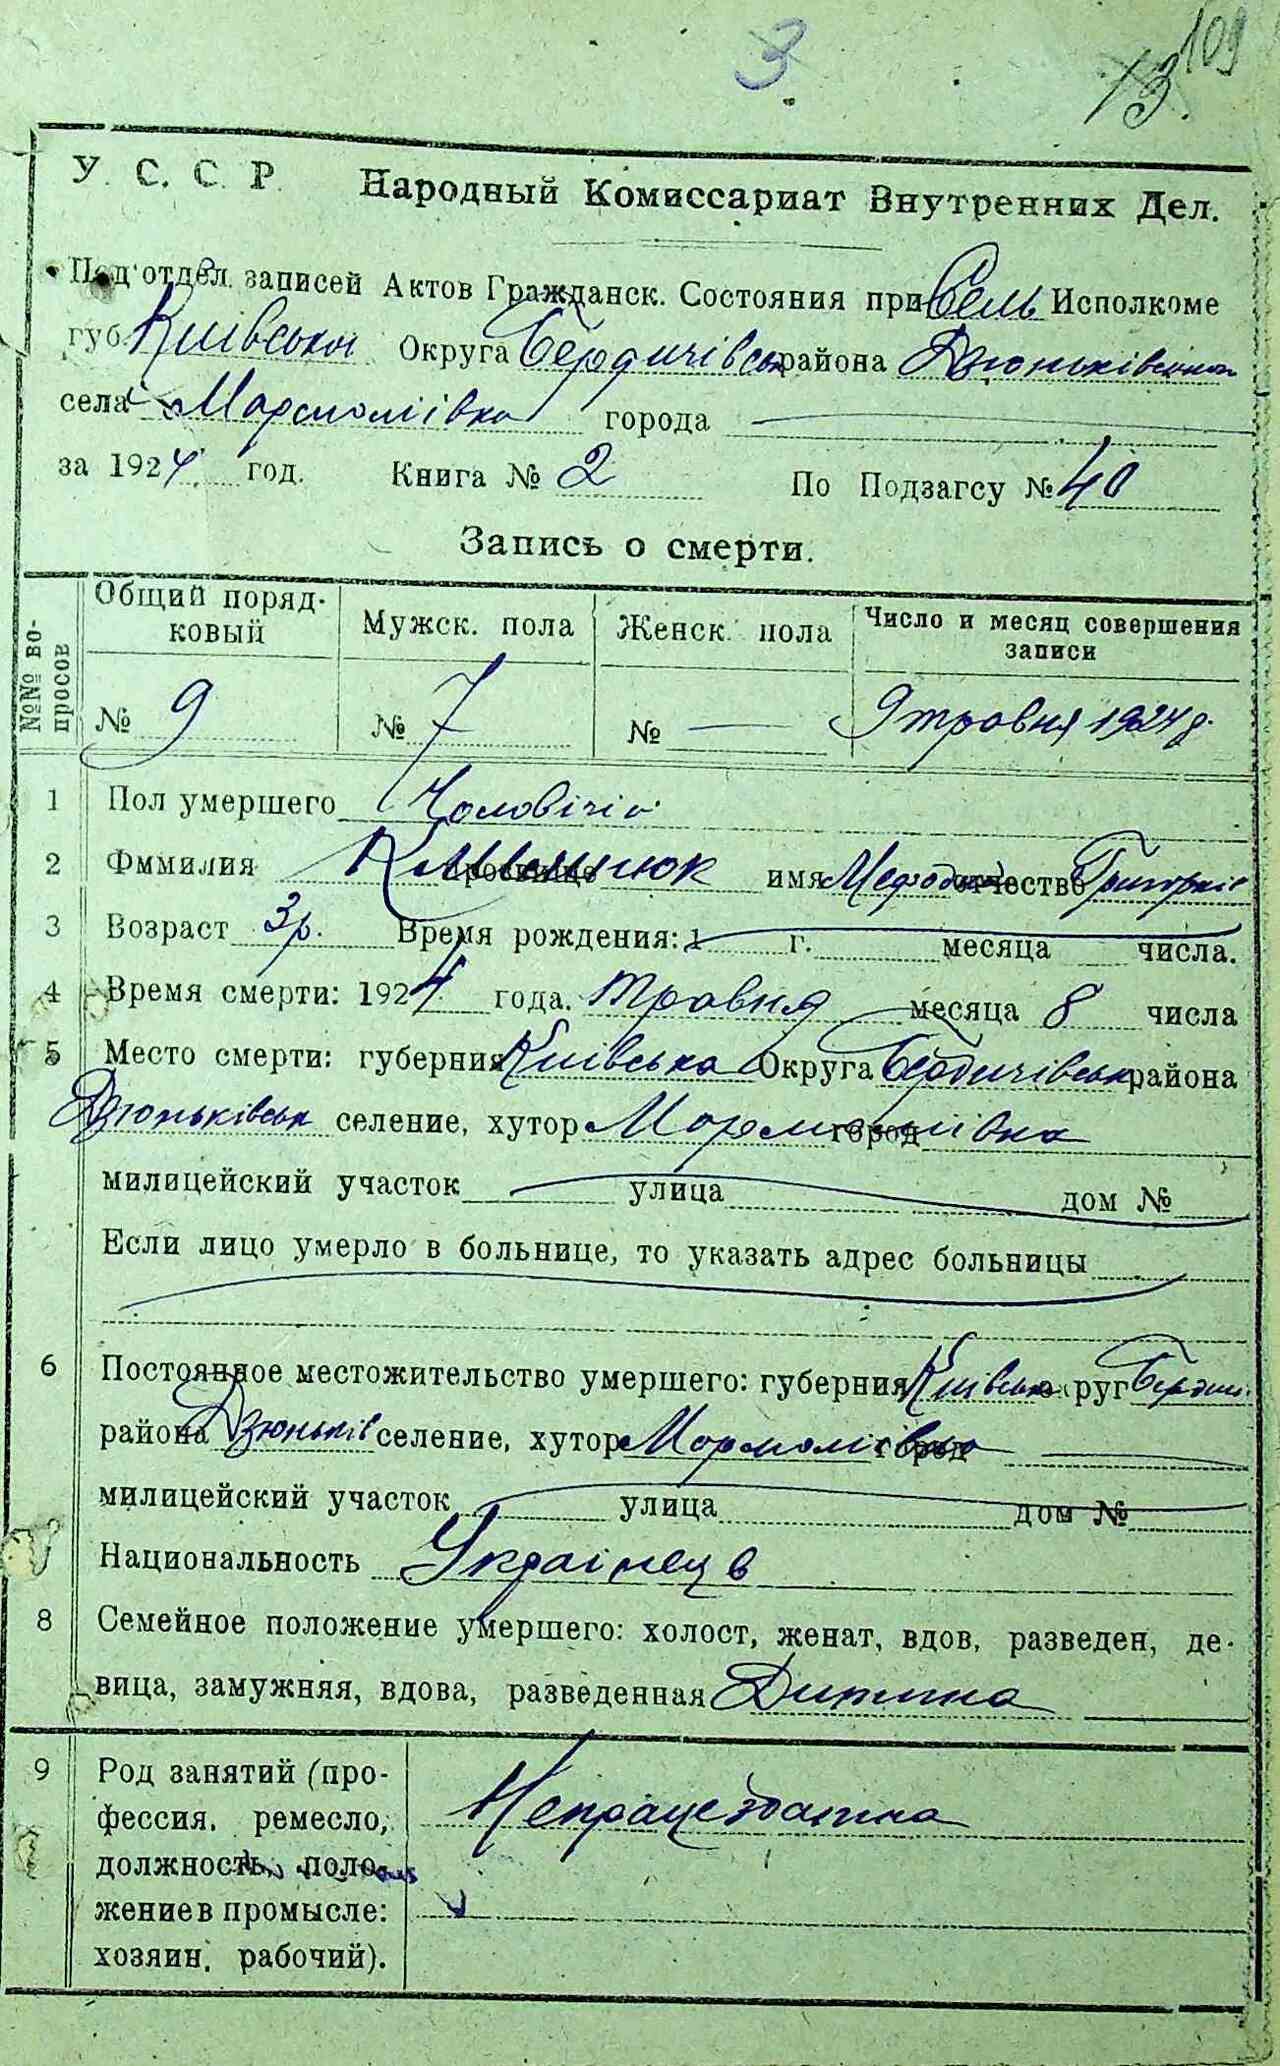 3.
109
13.
У. С. С. Р. Народный Комиссариат Внутренних Дел.
Под'отдел записей Актов Гражданск. Состояния при Сель Исполкоме
губ. Київської Округа Бердичівськ района Дзюньківського
села Мармоліївка города
за 1924 год. Книга № 2 По Подзагсу № 40
Запись о смерти.
№№ вопросов
Общий поряд-
ковый
Мужск. пола
Женск. пола
Число и месяц совершения
записи
№ 9 № 7 № — 9 травня 1924 р.
1 Пол умершего Чоловічої
2 Фммилия прозвище имя Мефодій отчество Григорків
3 Возраст 3 р. Время рождения: 1 г. месяца числа.
4 Время смерти: 1924 года. травня месяца 8 числа
5 Место смерти: губерния Київська Округа Бердичівськ района
Дзюньківськ селение, хутор Мармоліївка город
милицейский участок улица дом №
Если лицо умерло в больнице, то указать адрес больницы
6 Постоянное местожительство умершего: губерния Київськ округ Бердич.
района Дзюньків селение, хутор Мармоліївка город
милицейский участок улица дом №
7 Национальность Українець
8 Семейное положение умершего: холост, женат, вдов, разведен, де-
вица, замужняя, вдова, разведенная Дитина
9 Род занятий (про-
фессия, ремесло,
должность, поло-
жение в промысле:
хозяин, рабочий).
Непрацездатна